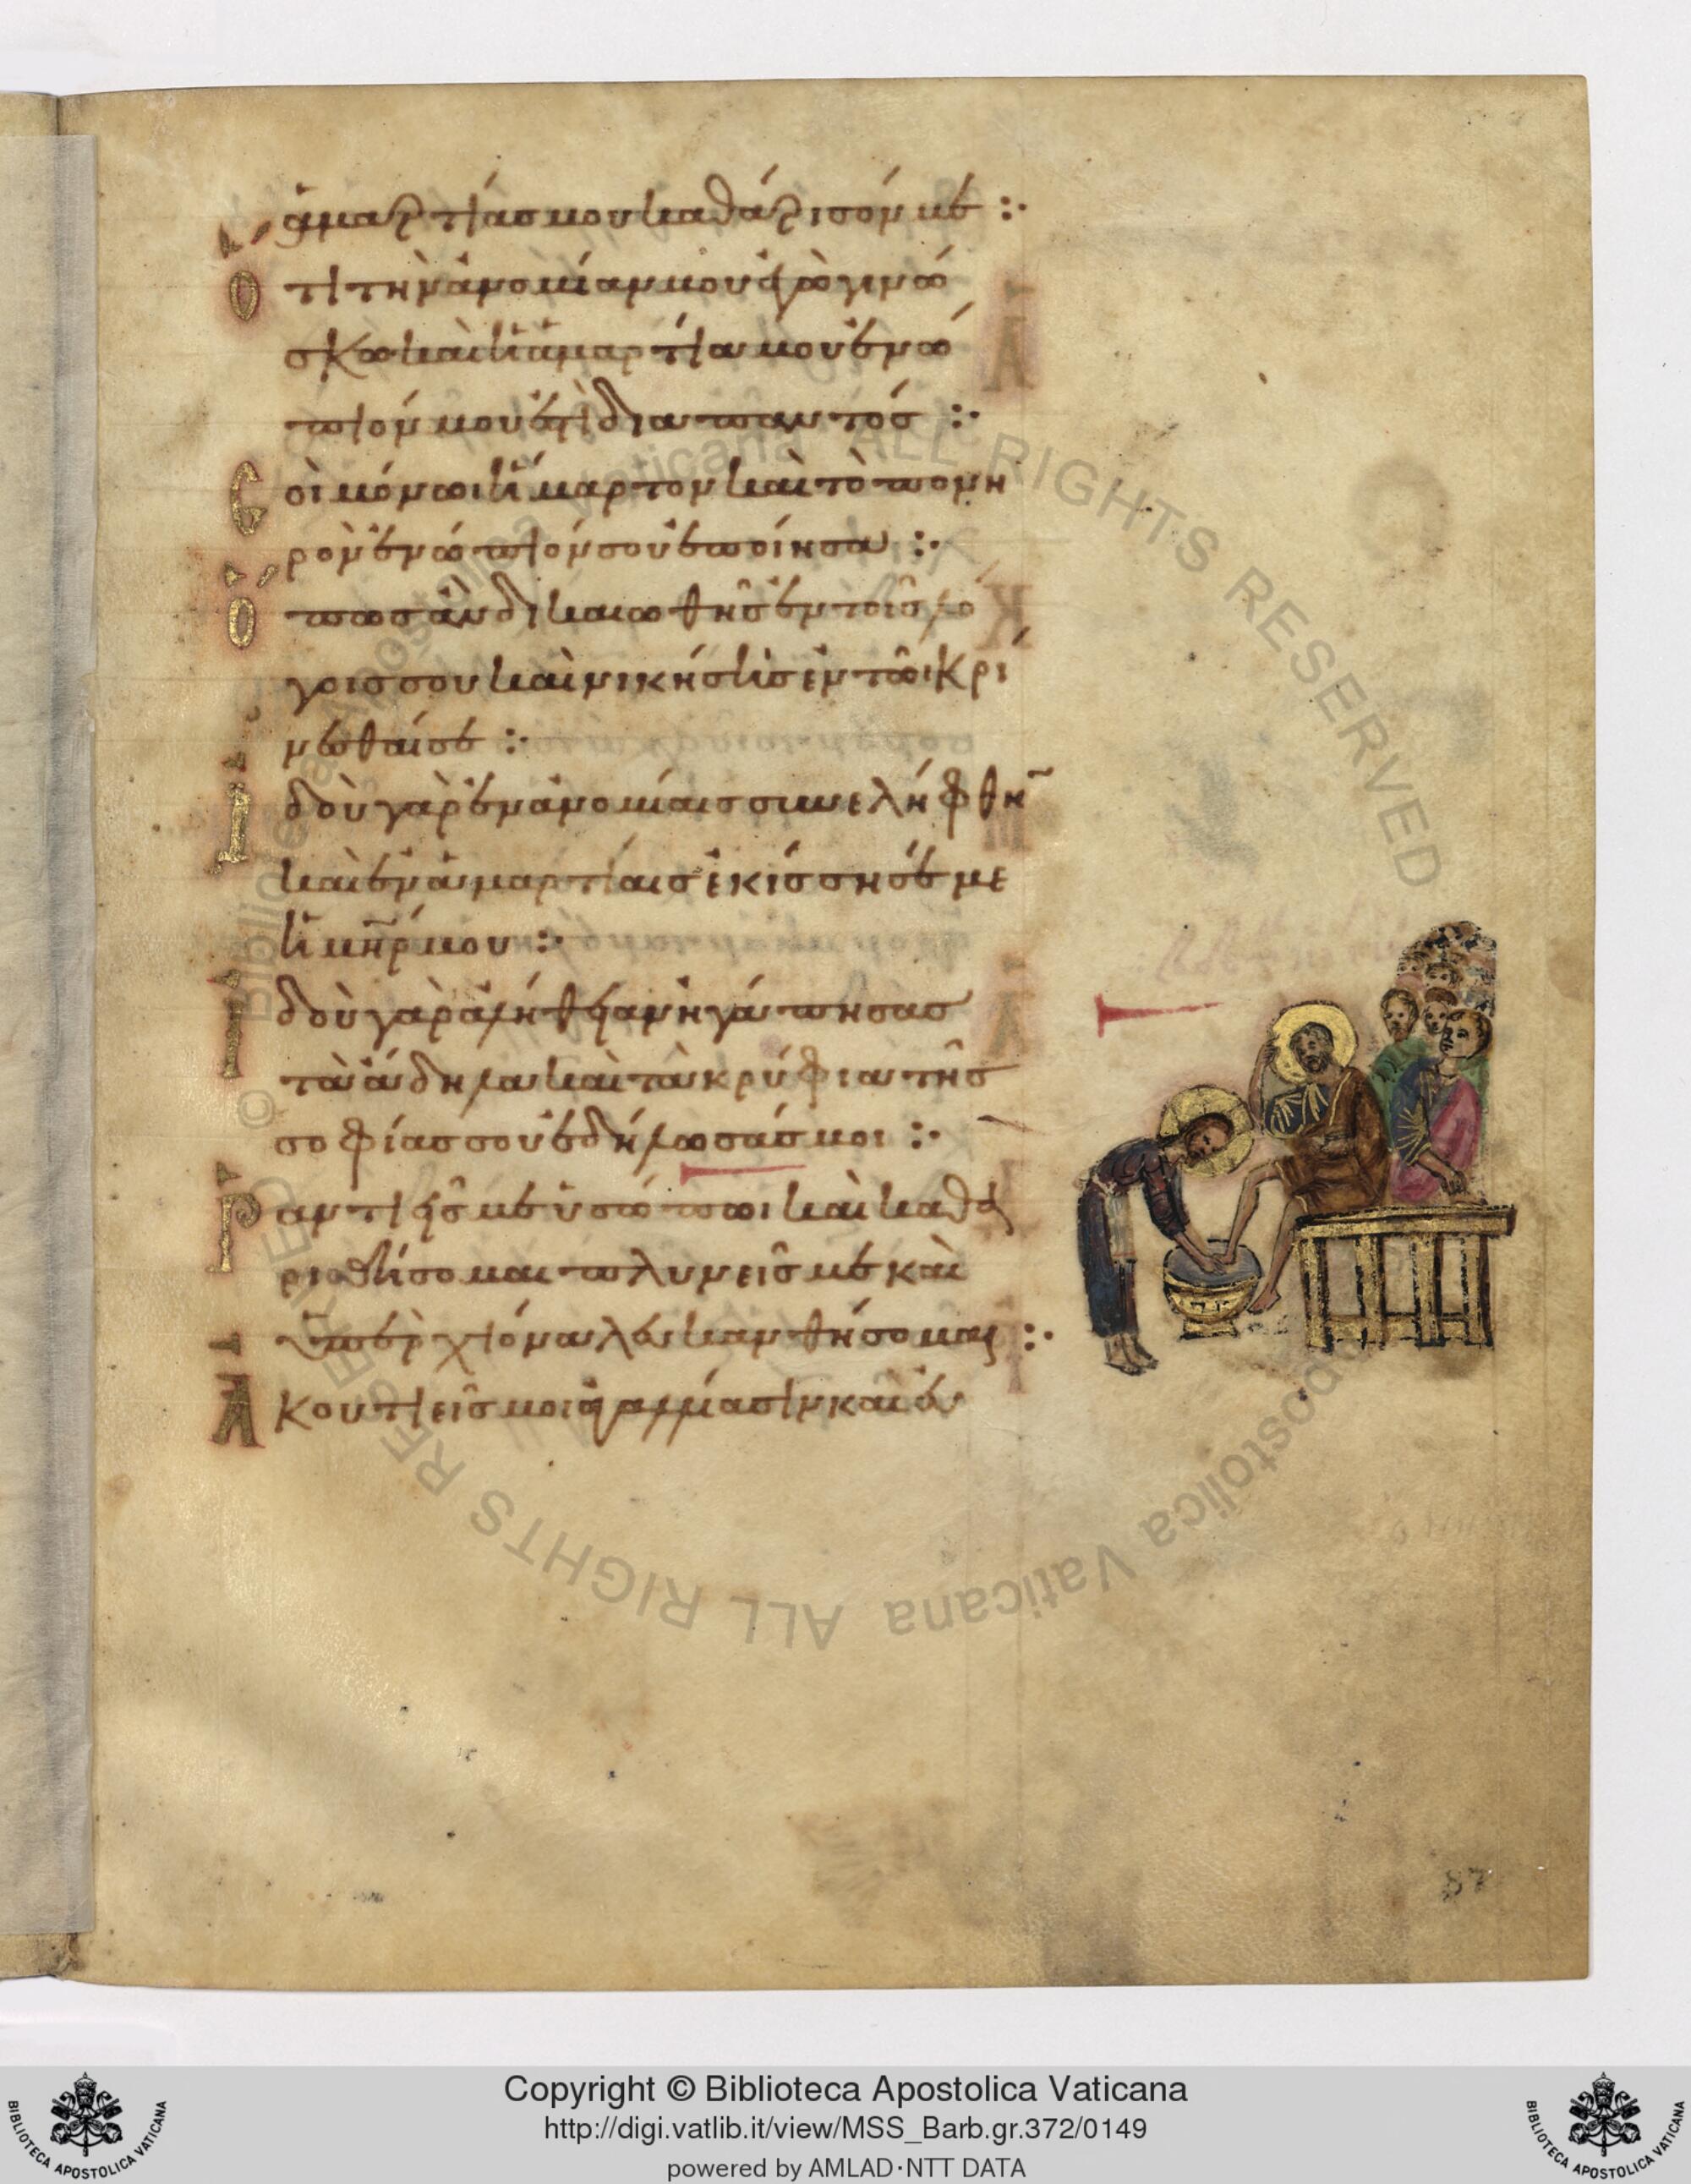 ἁμαρτίας μου καθάρισόν με :·
Ὅτι τὴν ἀνομίαν μου ἐγὼ γινώ
σκω καὶ ἡ ἁμαρτία μου ἐνώ
πιόν μου ἐστὶ διαπαντός :·
Σοὶ μόνωι ἥμαρτον καὶ τὸ πονη
ρὸν ἐνώπιόν σου ἐποίησα :·
Ὅπως ἂν δικαιωθῆς ἐν τοῖς λό
γοις σου καὶ νικήσης ἐν τῶι κρί
νεσθαί σε :·
Ἰδοὺ γὰρ ἐν ἀνομίαις συνελήφθην
καὶ ἐν ἁμαρτίαις ἐκίσσησέ με
ἡ μήτηρ μου :·
Ἰδοὺ γὰρ ἀλήθειαν ἠγάπησας
τὰ ἄδηλα καὶ τὰ κρύφια τῆς
σοφίας σου ἐδήλωσάς μοι :·
Ῥαντιεῖς με ὑσσώπωι καὶ καθα
ρισθήσομαι πλυνεῖς με καὶ
ὑπὲρ χιόνα λευκανθήσομαι :·
Ἀκουτιεῖς μοι ἀγαλλίασιν καὶ εὐ
87
© Biblioteca Apostolica Vaticana ALL RIGHTS RESERVED
Apostolica Vaticana ALL RIGHTS RESERVED
Copyright © Biblioteca Apostolica Vaticana
http://digi.vatlib.it/view/MSS_Barb.gr.372/0149
powered by AMLAD·NTT DATA
BIBLIOTECA APOSTOLICA VATICANA
BIBLIOTECA APOSTOLICA VATICANA